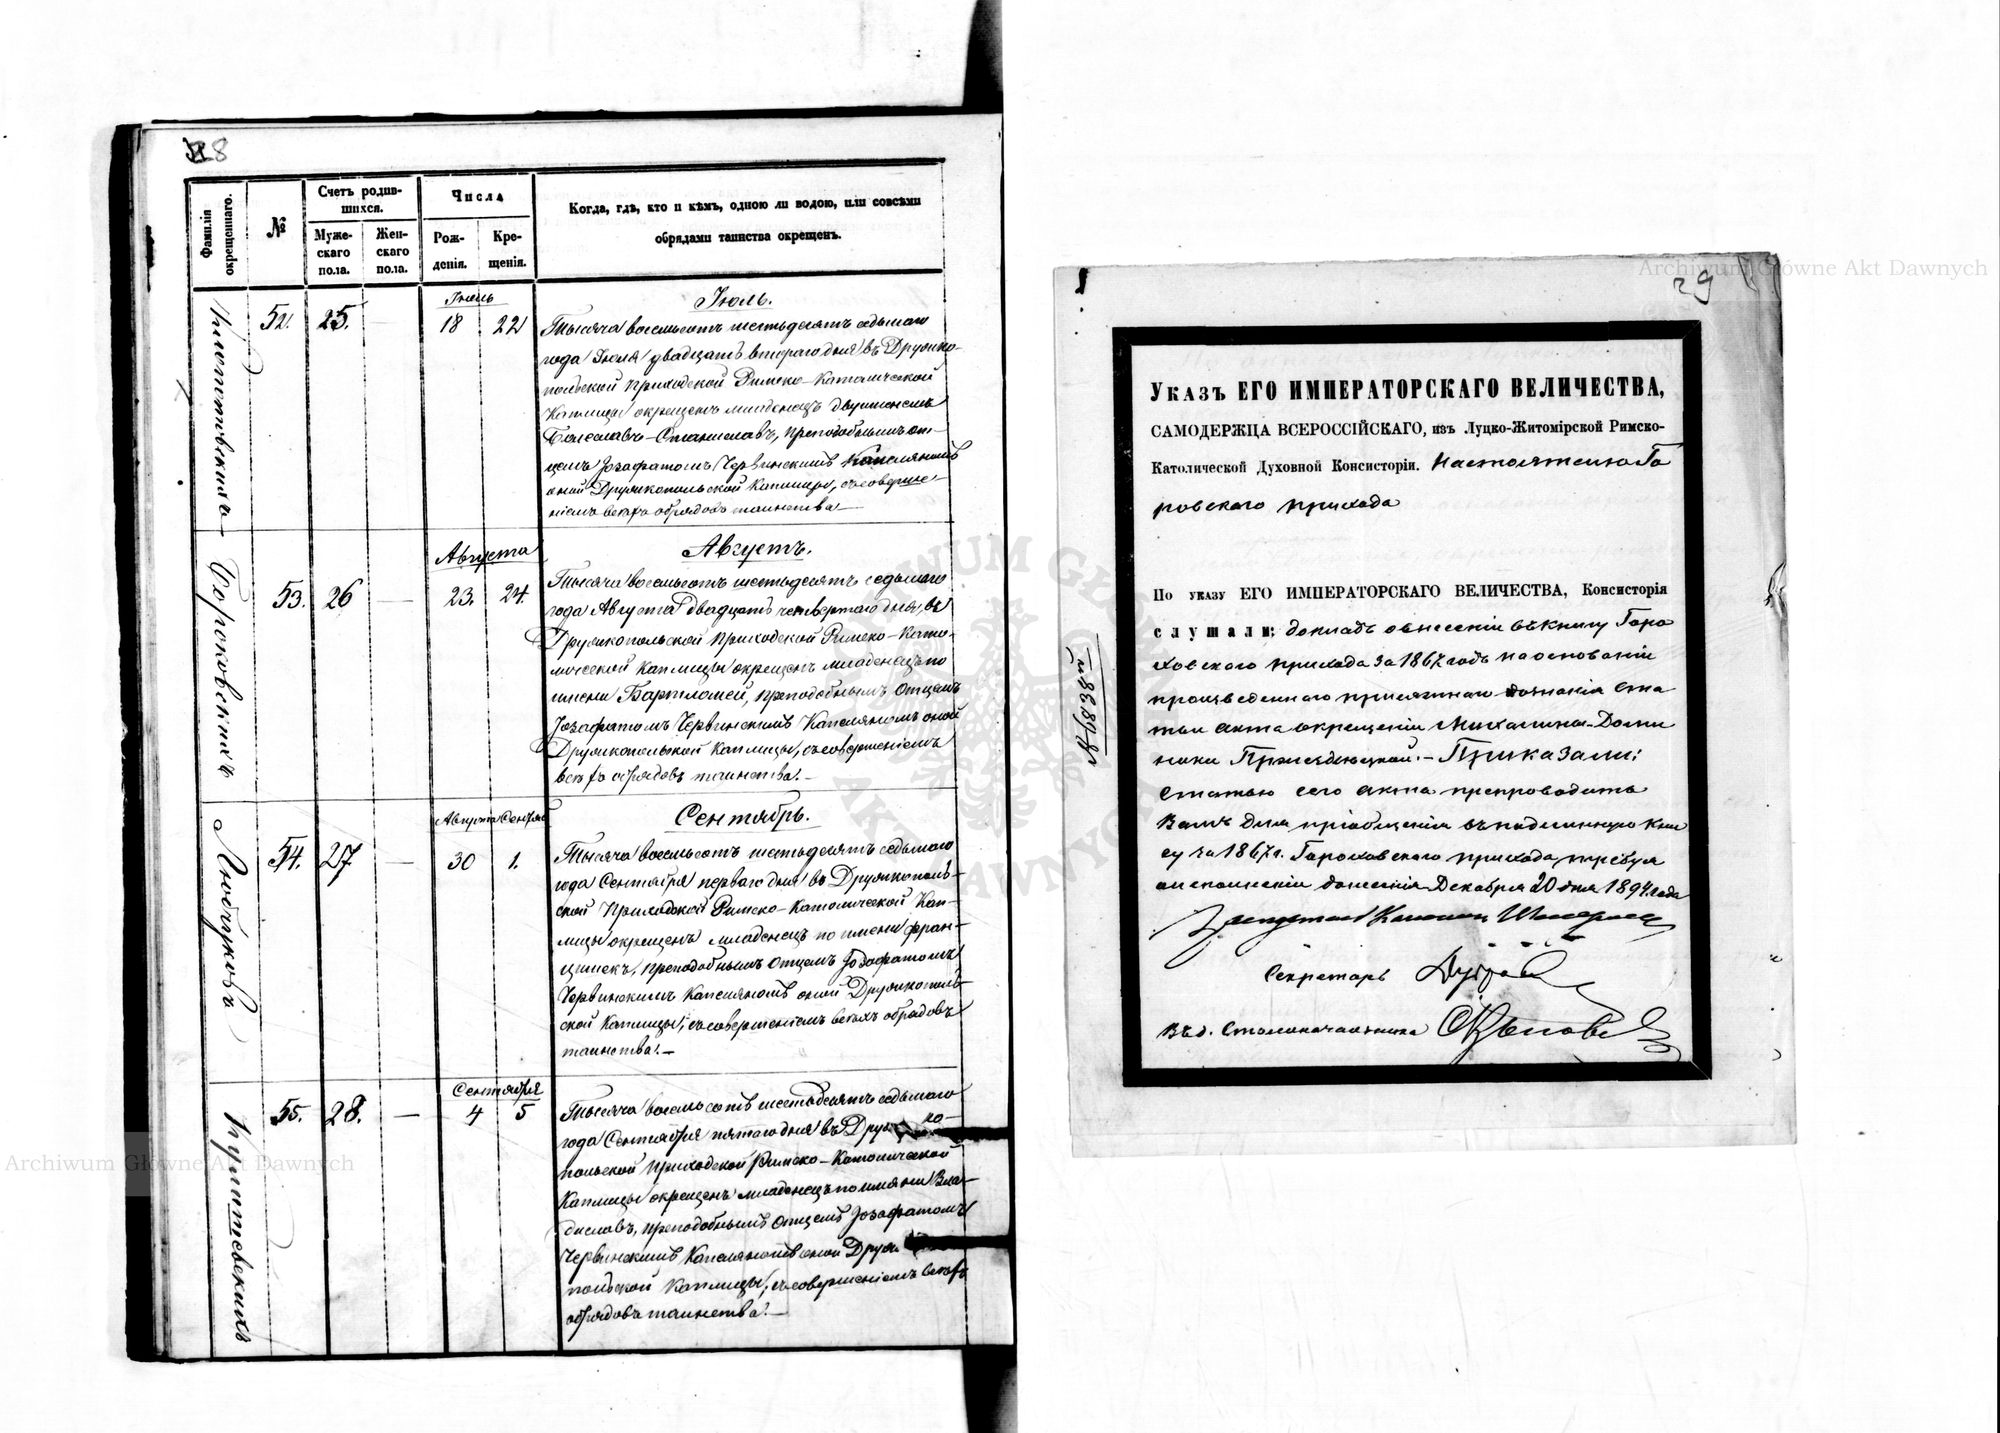 28
Фамилія окрещеннаго.
№
Счетъ родив-
шихся.
Муже-
скаго
пола.
Жен-
скаго
пола.
Числа
Рож-
денія.
Кре-
щенія.
Когда, гдѣ, кто и кѣмъ, одною ли водою, или совсѣми
обрядами таинства окрещенъ.
52.
25.
—
Іюль
18
22
Іюль.
Тысяча восемьсотъ шестьдесятъ седьмаго
года Іюля двадцать втораго дня въ Друшко-
польской приходской Римско-Католической
Каплицы окрещенъ младенецъ двуименемъ
Болеславъ-Станиславъ, преподобнымъ от-
цемъ Іозафатомъ Червинскимъ Капеляномъ
оной Друшкопольской Каплицы, съ соверше-
ніемъ всѣхъ обрядовъ таинства.—
Боровскихъ
53.
26
—
Августа
23.
24.
Августъ.
Тысяча восемьсотъ шестьдесятъ седьмаго
года Августа двадцать четвертаго дня, въ
Друшкопольской приходской Римско-Като-
лической Каплицы окрещенъ младенецъ по
имени Бартломей, преподобнымъ Отцемъ
Іозафатомъ Червинскимъ Капеляномъ оной
Друшкопольской Каплицы, съ совершеніемъ
всѣхъ обрядовъ таинства.—
54.
27
—
Августа Сентяб
30
1.
Сентябрь.
Тысяча восемьсотъ шестьдесятъ седьмаго
года Сентября перваго дня въ Друшкополь-
ской Приходской Римско-Католической Кап-
лицы окрещенъ младенецъ по имени Фран-
цишекъ, преподобнымъ Отцемъ Іозафатомъ
Червинскимъ Капеляномъ оной Друшкополь-
ской Каплицы, съ совершеніемъ всѣхъ обрядовъ
таинства.—
55.
28.
—
Сентября
4
5
Тысяча восемьсотъ шестьдесятъ седьмаго
года Сентября пятаго дня въ Друшко-
польской Приходской Римско-Католической
Каплицы окрещенъ младенецъ по имени Вла-
диславъ, преподобнымъ Отцемъ Іозафатомъ
Червинскимъ Капеляномъ оной Друш
польской Каплицы, съ совершеніемъ всѣхъ
обрядовъ таинства.—
29
Указъ ЕГО ИМПЕРАТОРСКАГО ВЕЛИЧЕСТВА,
САМОДЕРЖЦА ВСЕРОССІЙСКАГО, изъ Луцко-Житомірской Римско-
Католической Духовной Консисторіи. Настоятелю Го
ровского прихода
По указу ЕГО ИМПЕРАТОРСКАГО ВЕЛИЧЕСТВА, Консисторія
слушали: докладъ о внесеніи въ книгу Горо
ховского прихода за 1867 годъ на основаніи
произведеннаго присяжнаго дознанія ста
тьи акта окрещеніи Михалины-Доми
ники — Приказали:
Статью сего акта препроводить
Вамъ для пріобщенія въ подлинную кни
гу за 1867 г. Гороховского прихода, требуя
о исполненіи донесенія Декабря 20 дня 1894 года
Секретарь
Въ д. Столоначальника
№ 18388
Archiwum Główne Akt Dawnych
Archiwum Główne Akt Dawnych
ARCHIWUM GŁÓWNE AKT DAWNYCH